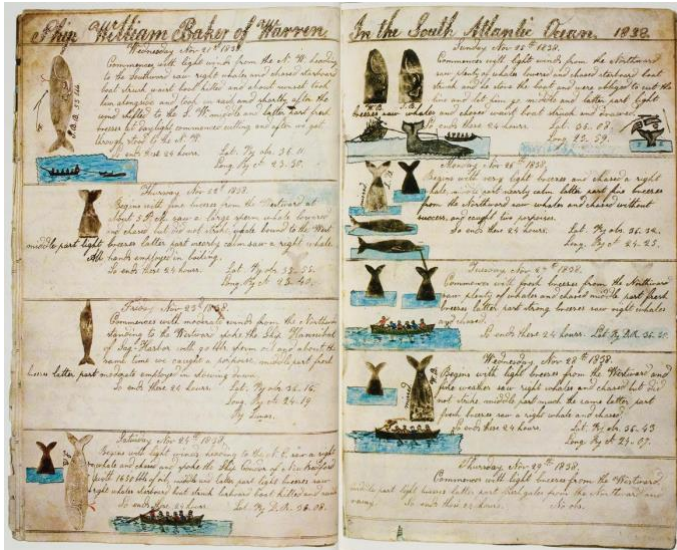 Ship William Baker of Warren
Wednesday Nov 21st 1838
Commences with light winds from the N. W. heading
to the Southward saw right whales and chased starboard
boat struck waist boat killed and about sunset took
him alongside and shortly after the
wind shifted to the S. W. middle and latter part fresh
breezes at daylight commences cutting and after we got
through stood to the N. W.
So ends these 24 hours. Lat. By obs. 36. 11.
Long. By ct. 23. 50.
Thursday Nov 22nd 1838.
Begins with fine breezes from the Westward at
About 5 P.M. saw a large sperm whale lowered
and chased but did not strike, to the West
middle part light breezes latter part nearly calm saw a right whale.
All hands employed in boiling.
So ends these 24 hours. Lat. By obs.
Long. By ct 23. 40.
Friday Nov 23d 1838.
Commences with moderate winds from the Northward
standing to the Westward the Ship Hannibal
of Sag-Harbor with sperm about the
same time we caught a porpoise, middle part fresh
breezes latter part moderate employed in stowing down.
So ends these 24 hours. Lat. By obs. 36. 16.
Long. By ct. 24. 19
By Lunar.
Saturday Nov 24th 1838.
Begins with light winds heading to the N. E. saw a right
whale and chased and spoke the Ship of New Bedford
with 1650 bbls of oil, middle and latter part light breezes saw
right whales larboard boat struck larboard boat killed and
So ends these 24 hours. Lat. By D.R. 36. 08.
In the South Atlantic Ocean. 1838.
Sunday Nov 25th 1838.
Commences with light winds from the Northward
saw plenty of whales lowered and chased starboard boat
struck and he stove the boat and were obliged to cut the
line and let him go middle and latter part light
breezes saw whales and chased waist boat struck and drawed.
So ends these 24 hours. Lat. 36. 08.
Long. 23. 59.
Monday Nov 26th 1838.
Begins with very light breezes and chased a right
whale, middle part nearly calm latter part fine breezes
from the Northward saw whales and chased without
success, and caught two porpoises.
So ends these 24 hours. Lat. By obs. 36. 32.
Long. By ct. 24. 25.
Tuesday Nov 27th 1838.
Commences with fresh breezes from the Northward
saw plenty of whales and chased middle part fresh
breezes latter part strong breezes saw right whales
and chased.
So ends these 24 hours. Lat. By D.R. 36. 51.
Wednesday Nov 28th 1838.
Begins with light breezes from the Westward and
fine weather saw right whales and chased but did
not strike middle part much the same latter part
fresh breezes saw a right whale and chased
So ends these 24 hours. Lat. By obs. 36. 43
Long. By ct. 24. 07.
Thursday Nov 29th 1838.
Commences with light breezes from the Westward,
middle part light breezes latter part fresh gales from the Northward and
So ends these 24 hours. No obs.